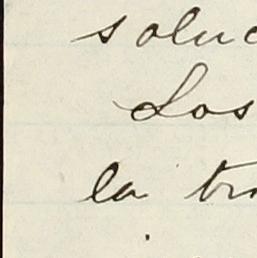 soluc
Los
la tr